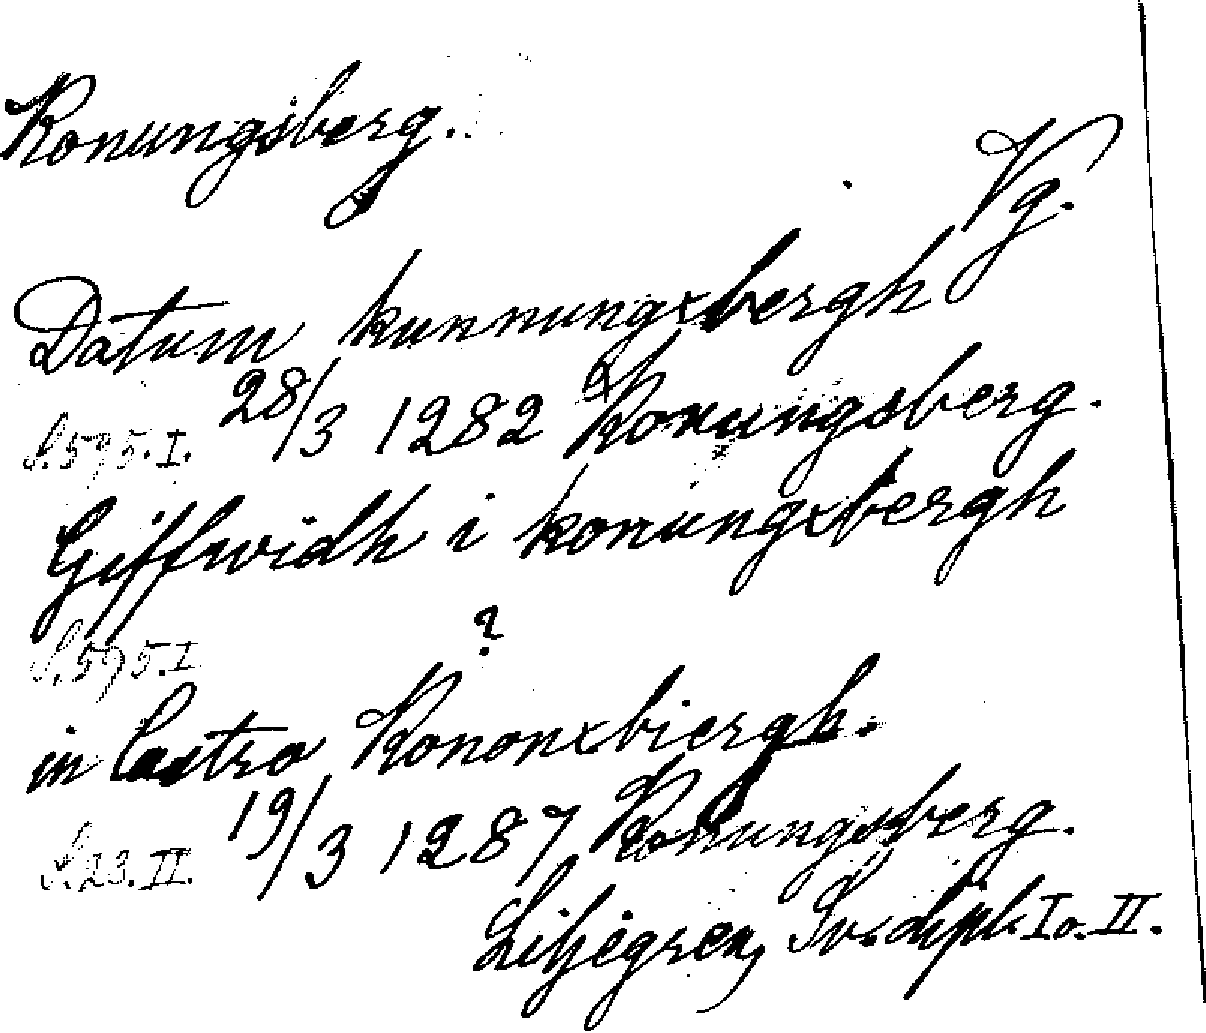 Konungsberg.
Vg.
Datum kunnungxbergh
S. 595. I. 28/3 1282 Konungsberg.
Giffwidh i konungxbergh
S. 595. I ?
in Castro Kononxbiergh.
S. 23. II. 19/3 1287 Konungsberg.
Liljegren, Sv. dipl. I o. II.